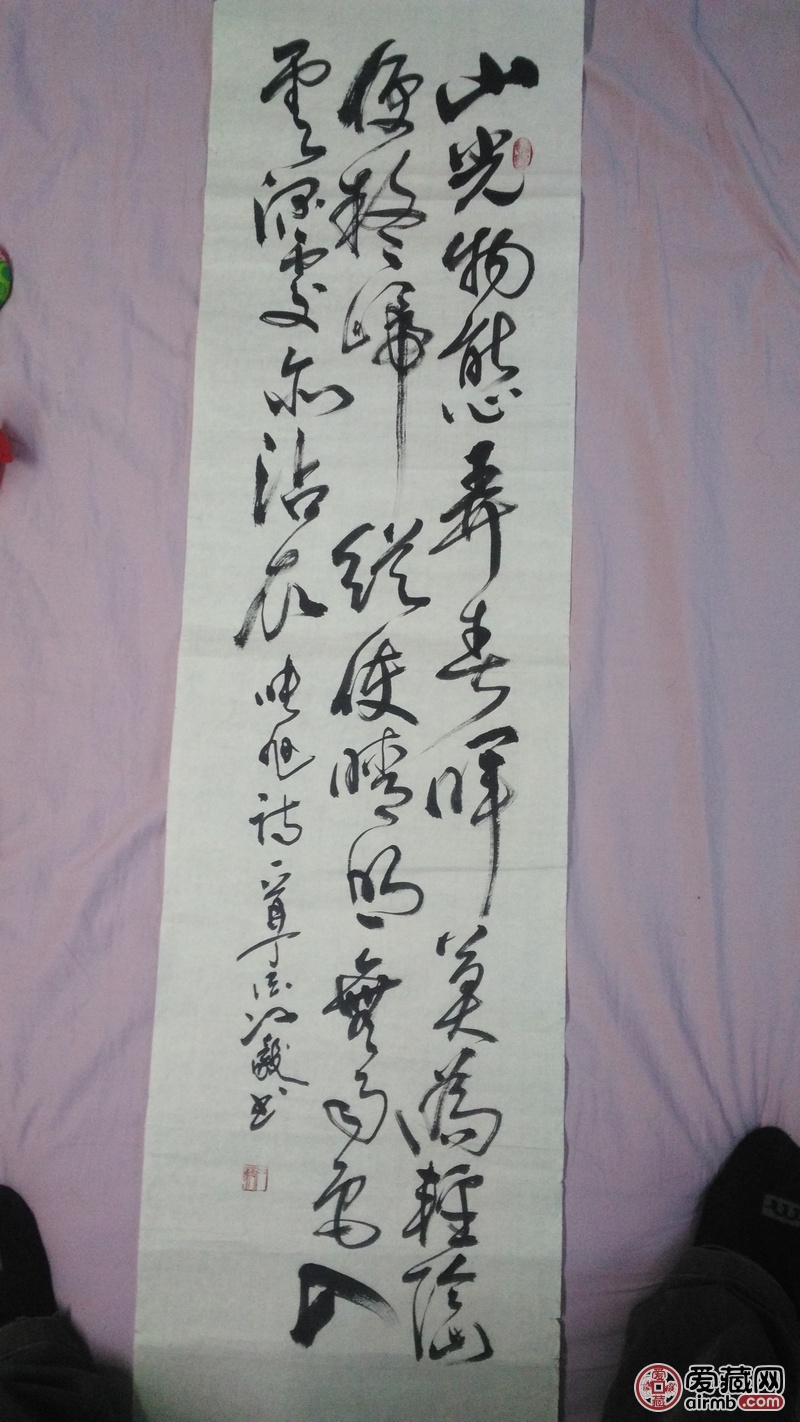 山光物態弄春暉莫為輕陰
便擬歸縱使晴明無雨色入
雲深處亦沾衣 張旭詩一首 毅書
爱藏网
airmb.com